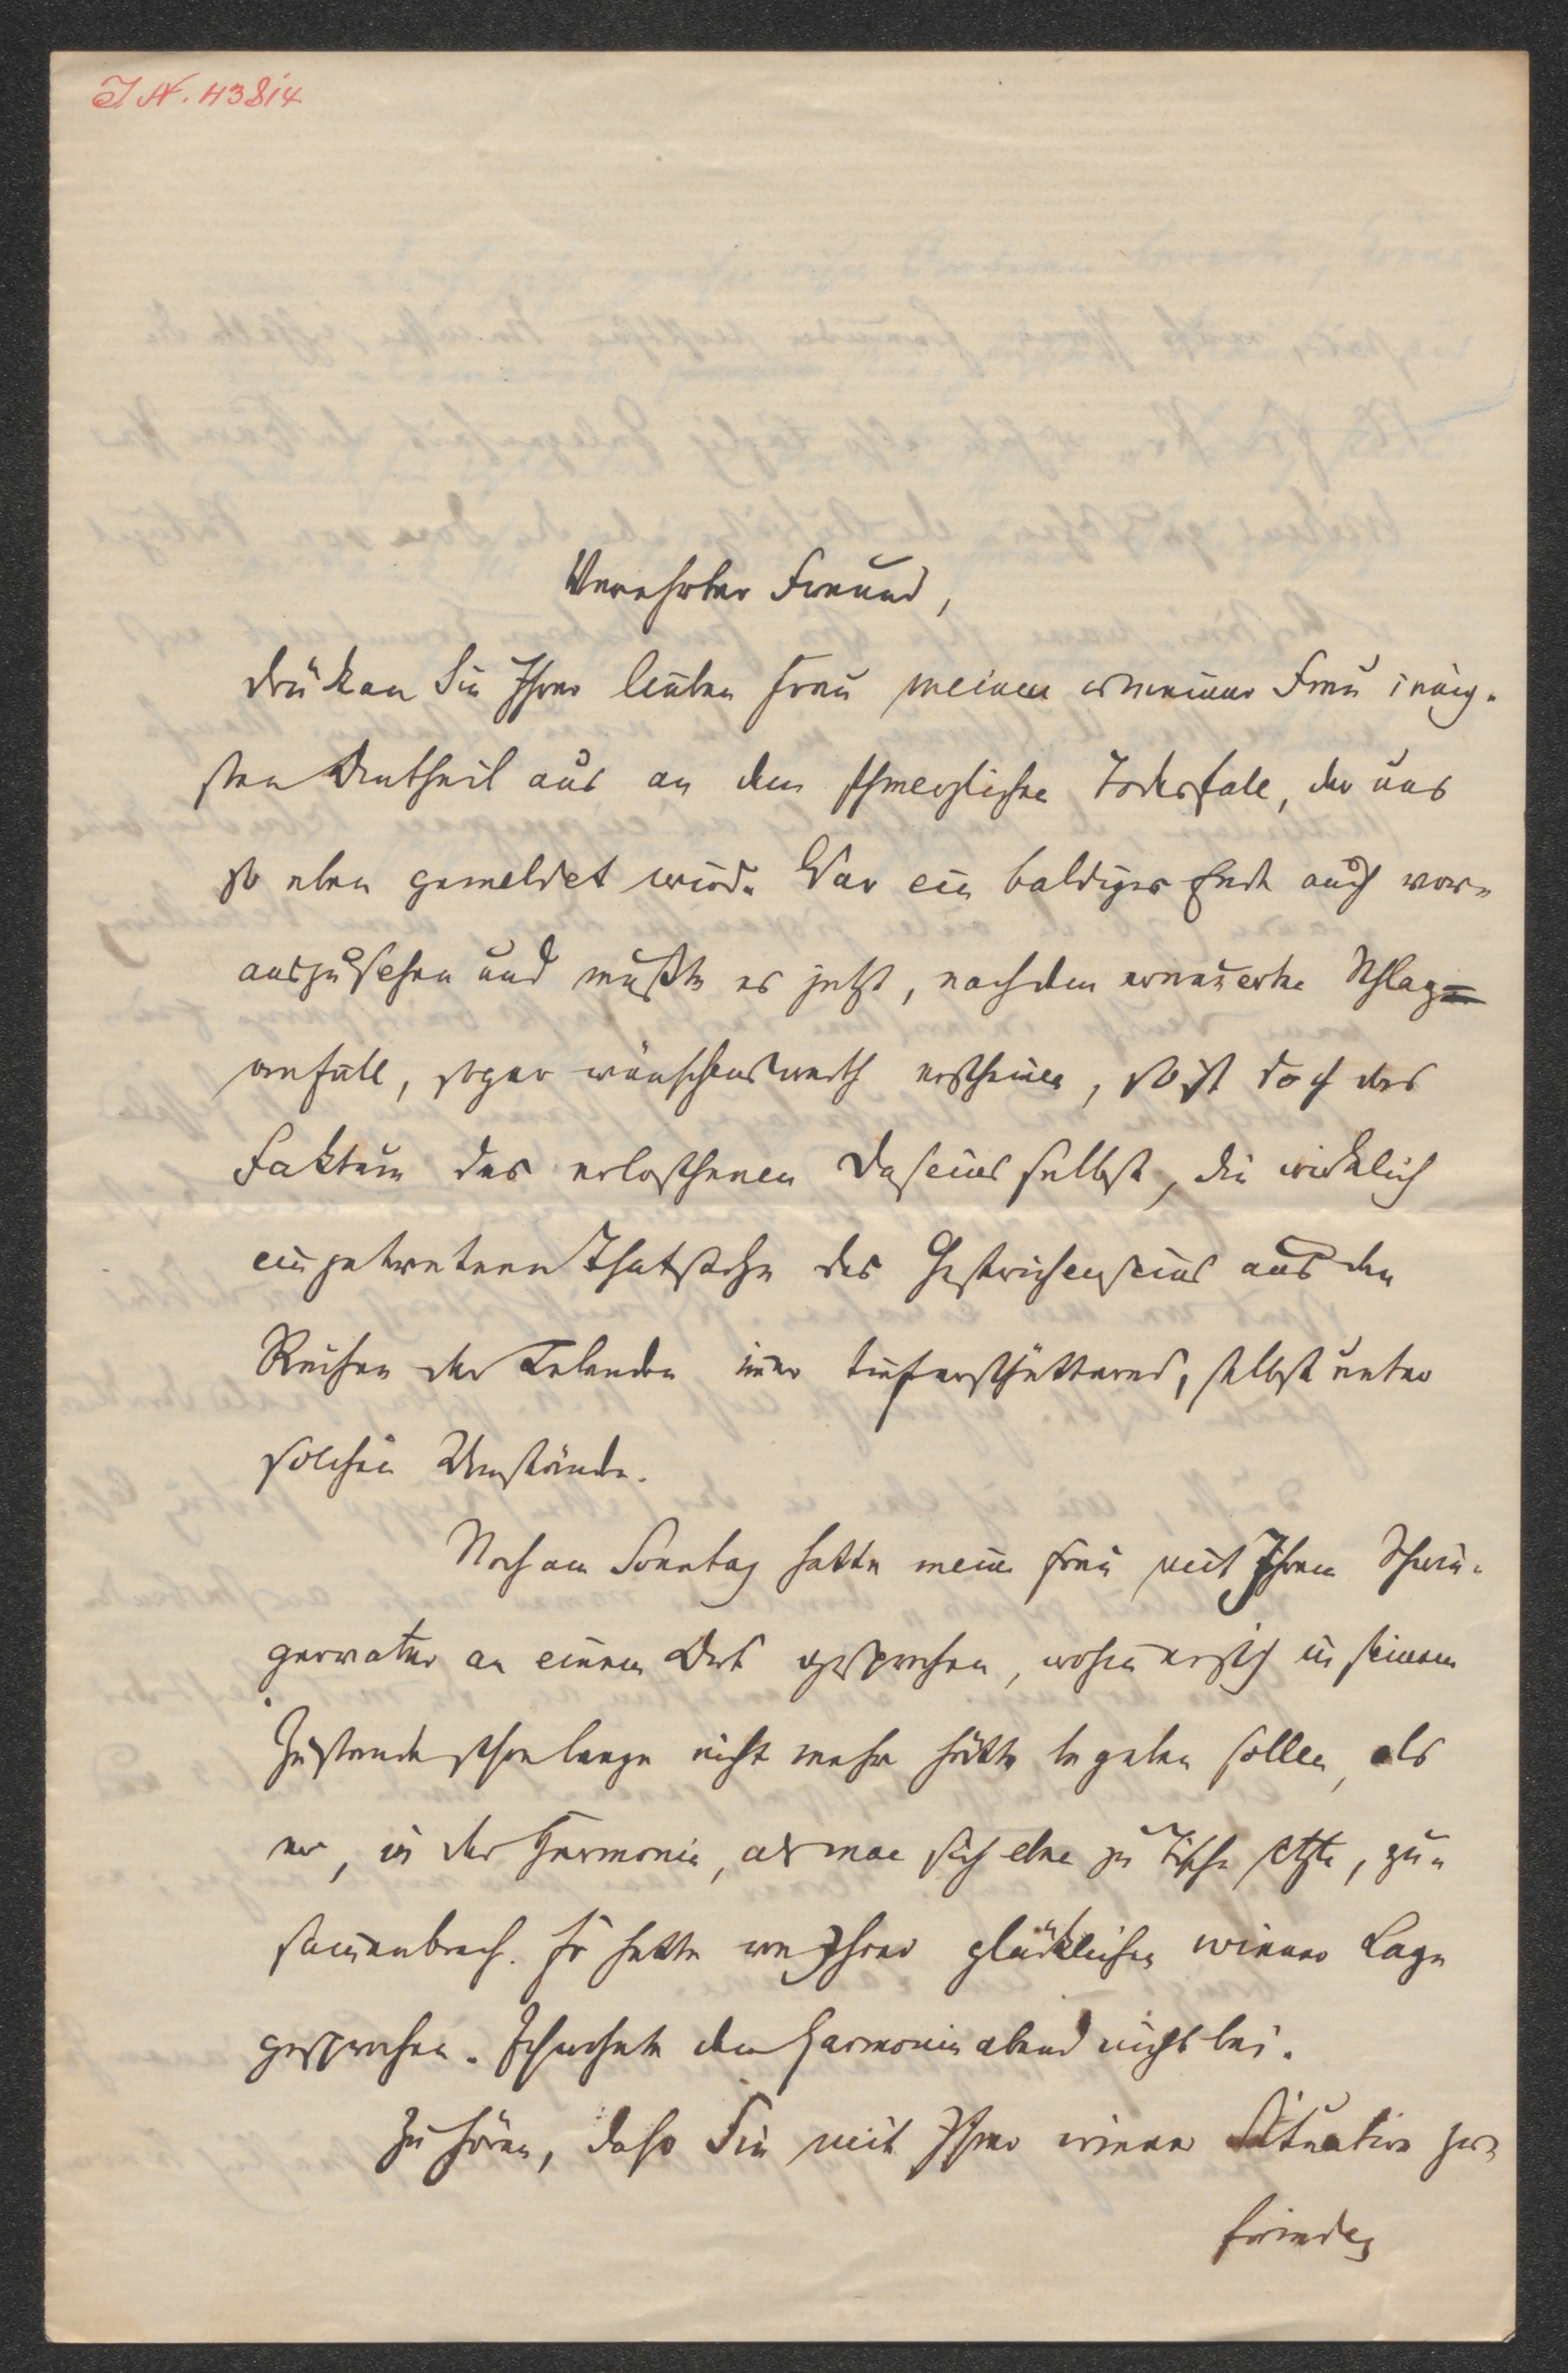 I N. 43814
Verehrter Freund,
drücken Sie Ihrer lieben Frau meinen u meiner Frau innig-
sten Antheil aus an dem schmerzlichen Todesfale, der uns
so eben gemeldet wird. War ein baldiges Ende auch vor-
auszusehen und mußte es jetzt, nach dem erneuerten Schlag-
anfall, sogar wünschenswerth erscheinen, so ist doch das
Faktum des erloschenen Daseins selbst, die wirklich
eingetretene Thatsache des Gestrichenseins aus den
Reihen der Lebenden immer tieferschütternd, selbst unter
solchen Umständen.
Noch am Sonntag hatte meine Frau mit Ihrem Schwie-
gervater an einem Ort gesprochen, wohin er sich in seinem
Zustande schon lange nicht mehr hätte begeben sollen, als
er, in der Harmonie, als man sich eben zu Tische setzte, zu-
sammenbrach. Er hatte von Ihrer glücklichen wiener Lage
gesprochen. Ich wohnte dem Harmonieabend nicht bei.
Zu hören, daß Sie mit Ihrer wiener Situation zu-
frieden